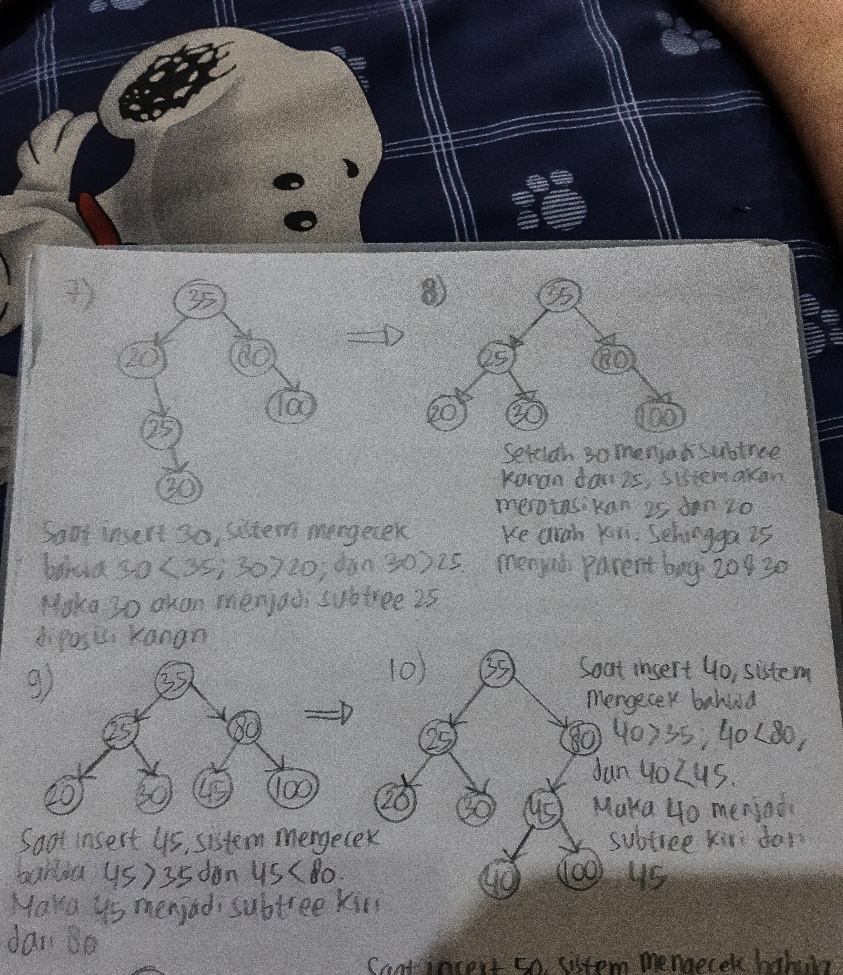 7)
35
20 80
25 100
30
Saat insert 30, sistem mengecek
bahwa 30 < 35; 30 > 20; dan 30 > 25.
Maka 30 akan menjadi subtree 25
diposisi kanan
8)
35
25 80
20 30 100
Setelah 30 menjadi subtree
kanan dari 25, sistem akan
merotasikan 25 dan 20
ke arah kiri. Sehingga 25
menjadi parent bagi 20 & 30
9)
35
25 80
20 30 45 100
Saat insert 45, sistem mengecek
bahwa 45 > 35 dan 45 < 80.
Maka 45 menjadi subtree kiri
dari 80
10)
35
25 80
20 30 45
40 100
Saat insert 40, sistem
mengecek bahwa
40 > 35; 40 < 80,
dan 40 < 45.
Maka 40 menjadi
subtree kiri dari
45
Saat insert 50, sistem mengecek bahwa